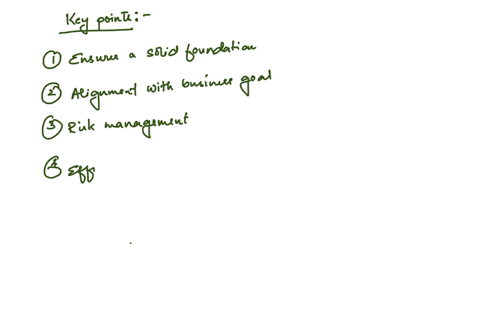 Key points:-
① Ensures a solid foundation
② Alignment with business goal
③ Risk management
④ Eff